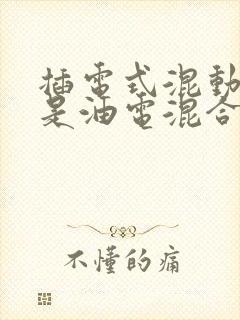 插電式混動
是油電混合
不懂的痛